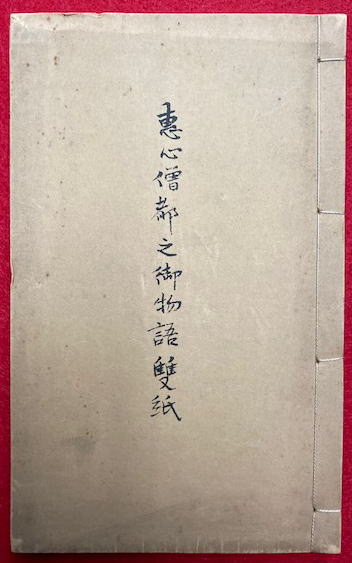 惠心僧都之御物語雙紙